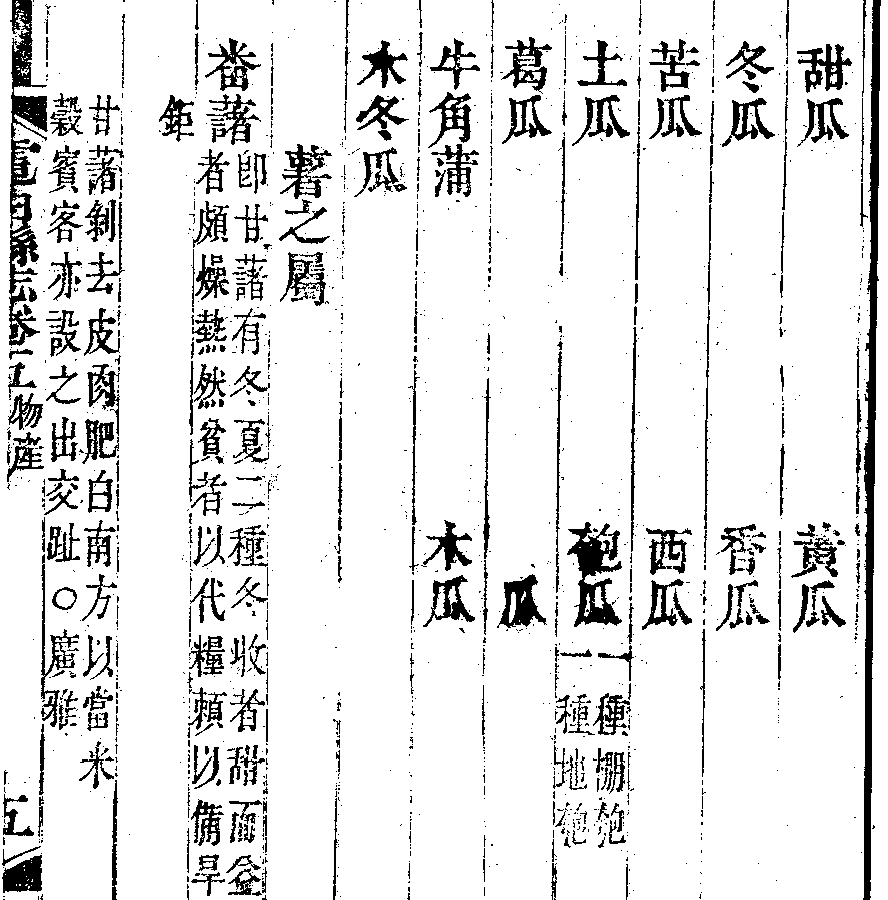 甜瓜 黃瓜
冬瓜 香瓜
苦瓜 西瓜
土瓜 匏瓜 一種棚匏 一種地匏
葛瓜 瓜
牛角蒲 木瓜
木冬瓜
薯之屬
畨藷 卽甘藷有冬夏二種冬收者甜而益
者頗燥熱然貧者以代糧賴以備旱
鉅
甘藷剝去皮肉肥白南方以當米
榖賓客亦設之出交趾○廣雅
電白縣志卷五 物產 五